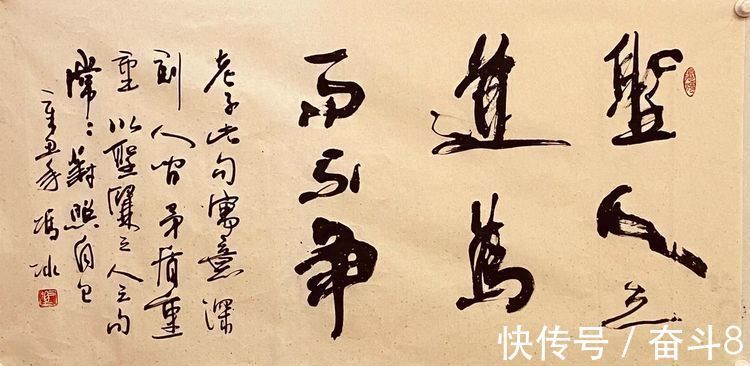 聖人之
道為
而不争
老子此句寓意深
刻人间矛盾重
重以聖賢之人之句
常々對照自己
辛丑 馮冰
快传号 / 奋斗8